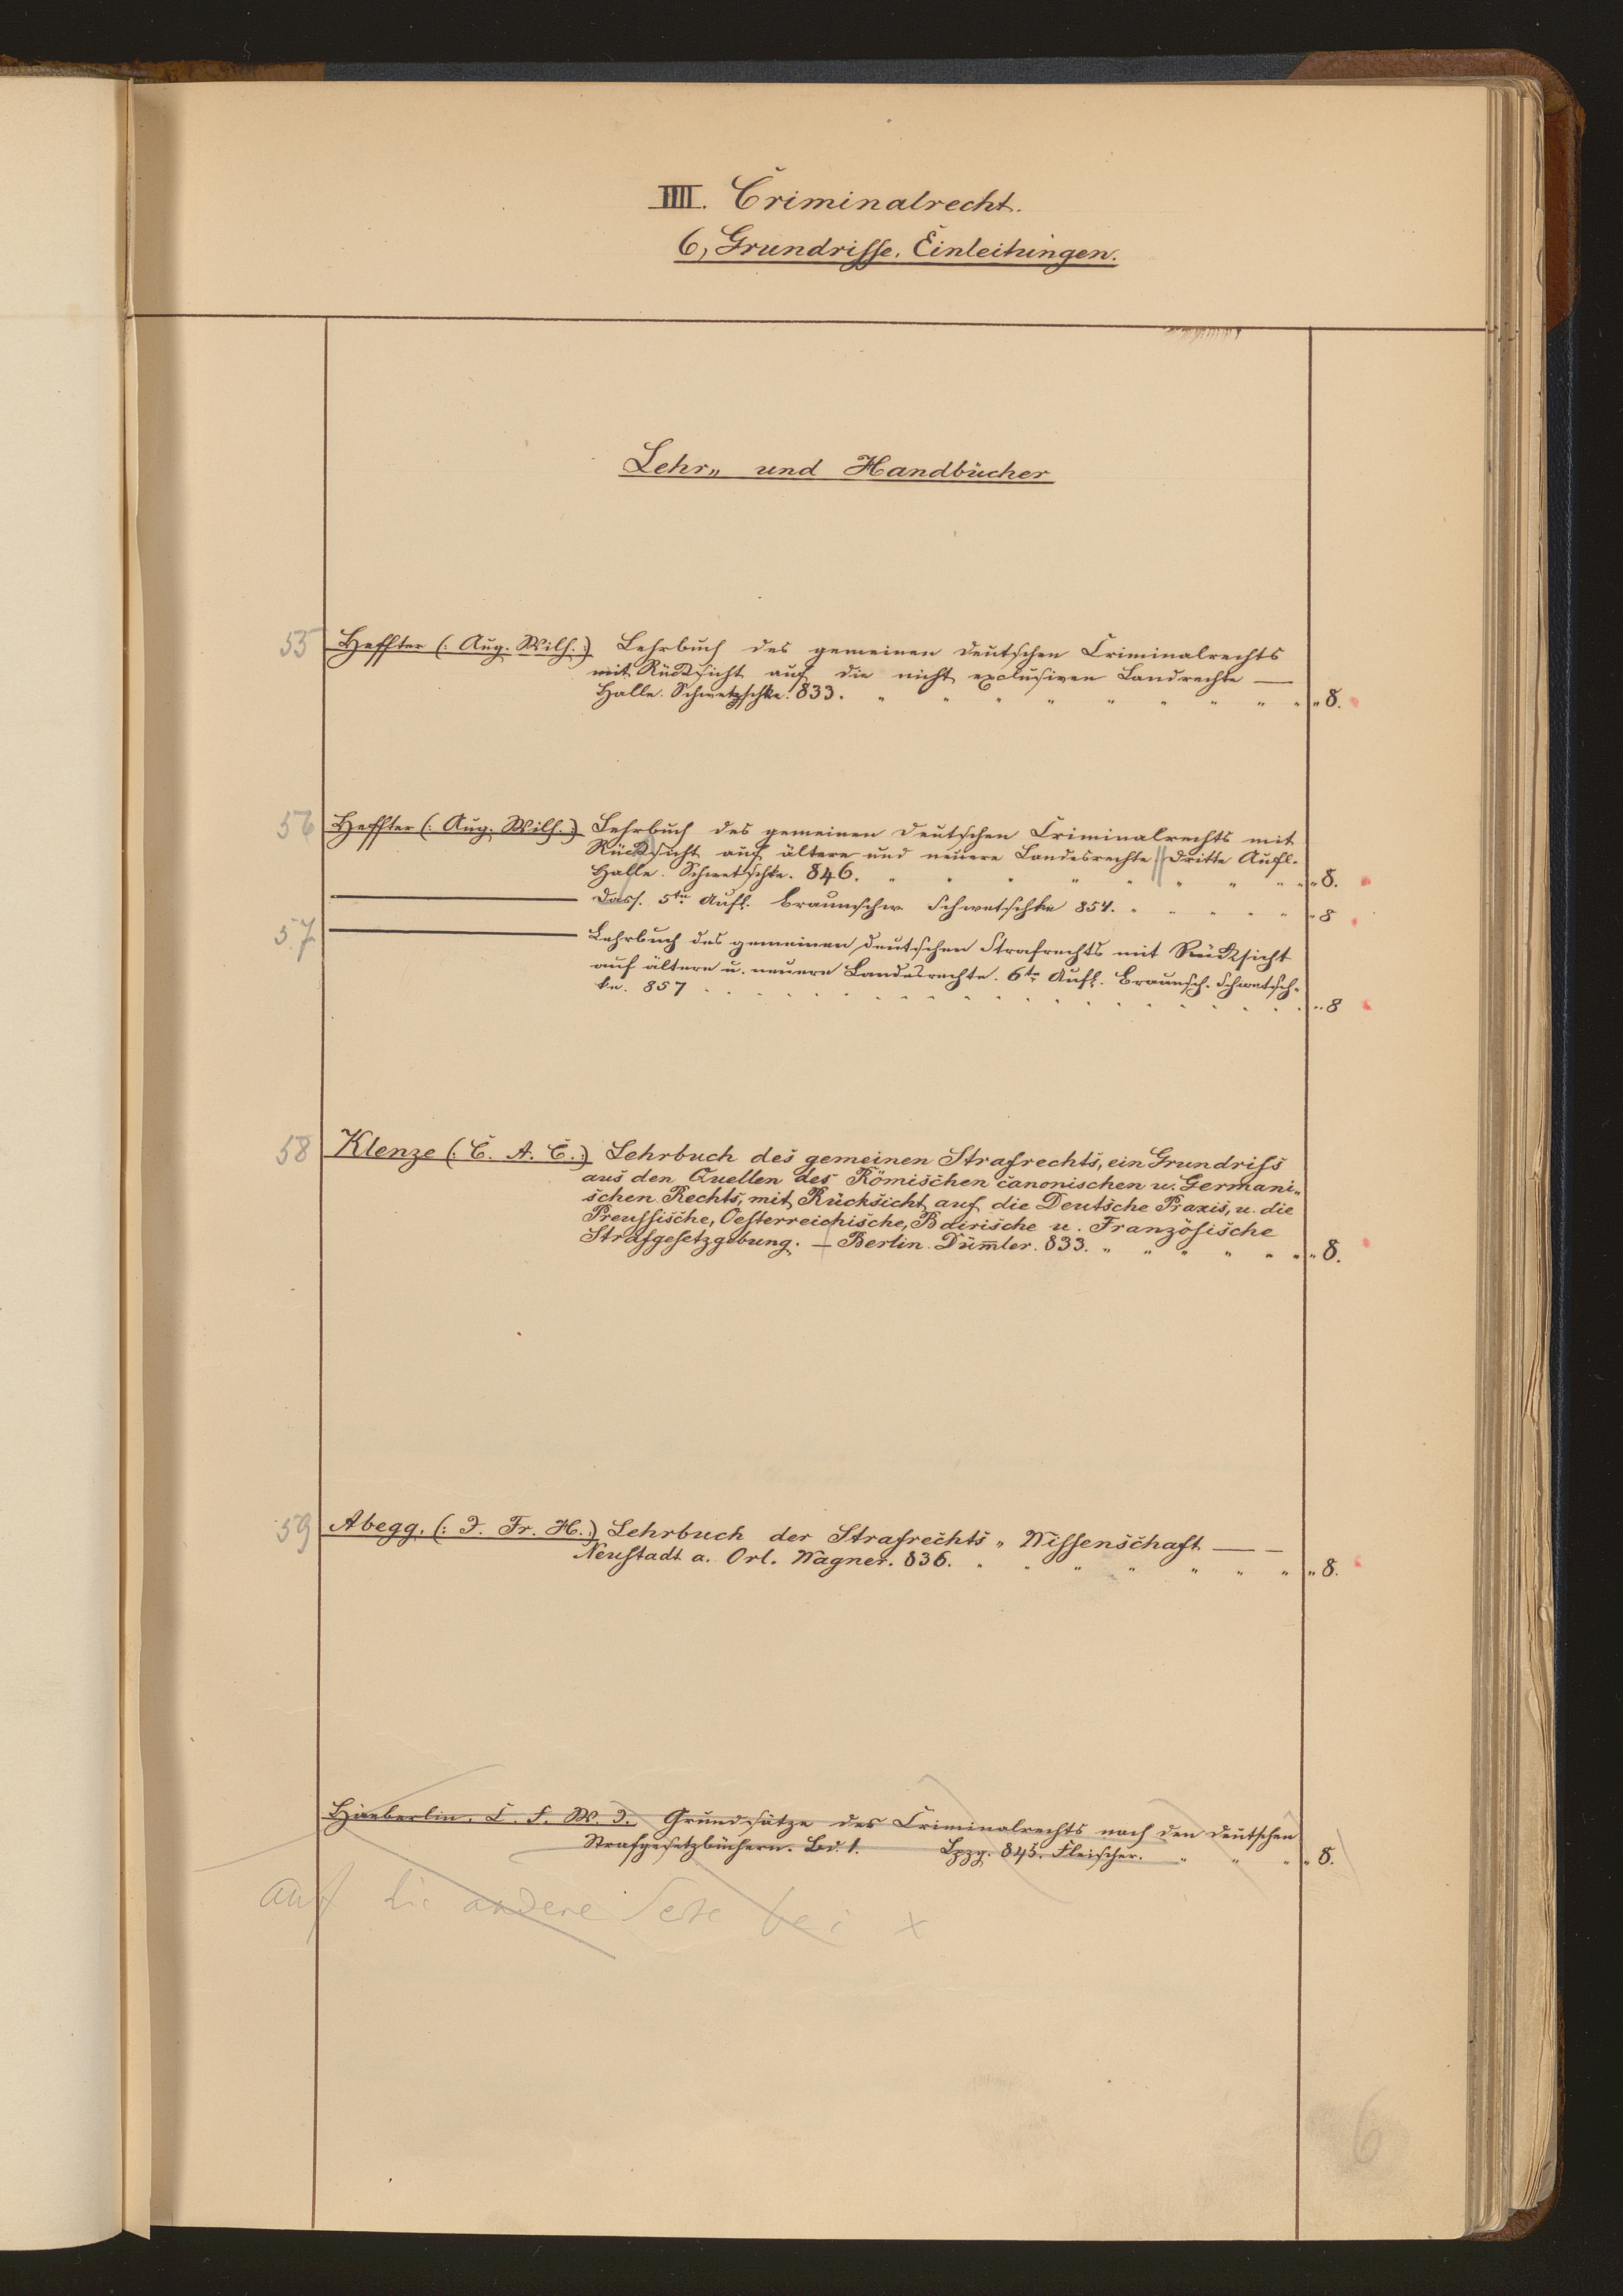 IIII. Criminalrecht.
6, Grundrisse. Einleitungen.
Lehr„ und Handbücher
55 Heffter (: Aug. Wilh. :) Lehrbuch des gemeinen deutschen Criminalrechts
mit Rücksicht auf die nicht exclusiven Landrechte —
Halle. Schwetzschke. 833. „ „ „ „ „ „ „ „ „ „ 8.
56 Heffter (: Aug. Wilh. :) Lehrbuch des gemeinen deutschen Criminalrechts mit
Rücksicht auf ältere und neuere Landesrechte || dritte Aufl.
Halle. Schwetschke. 846. „ „ „ „ „ „ „ „ „ „ 8.
——— Dass. 5te Aufl. Braunschw. Schwetschke 854. „ „ „ „ „ „ 8
57 ——— Lehrbuch des gemeinen deutschen Strafrechts mit Rücksicht
auf ältere u. neuere Landesrechte. 6te Aufl. Braunsch. Schwetsch-
ke. 857 . . . . . . . . . . . . . . . . „ 8
58 Klenze (: C. A. C. :) Lehrbuch des gemeinen Strafrechts, ein Grundriſs
aus den Quellen des Römischen canonischen u. Germani„
schen Rechts, mit Rücksicht auf die Deutsche Praxis, u. die
Preuſsische, Oesterreichische, Bairische u. Französische
Strafgesetzgebung. — Berlin. Düm̅ler. 833. „ „ „ „ „ „ „ 8.
59 Abegg. (: J. Fr. H. :) Lehrbuch der Strafrechts „ Wiſsenschaft — —
Neustadt a. Orl. Wagner. 836. „ „ „ „ „ „ „ „ 8.
Häeberlin. C. F. W. J. Grundsätze des Criminalrechts nach den deutschen
Strafgesetzbüchern. Bd. 1. Lpzg. 845. Fleischer. „ „ „ „ 8.
auf die andere Seite bei x
6